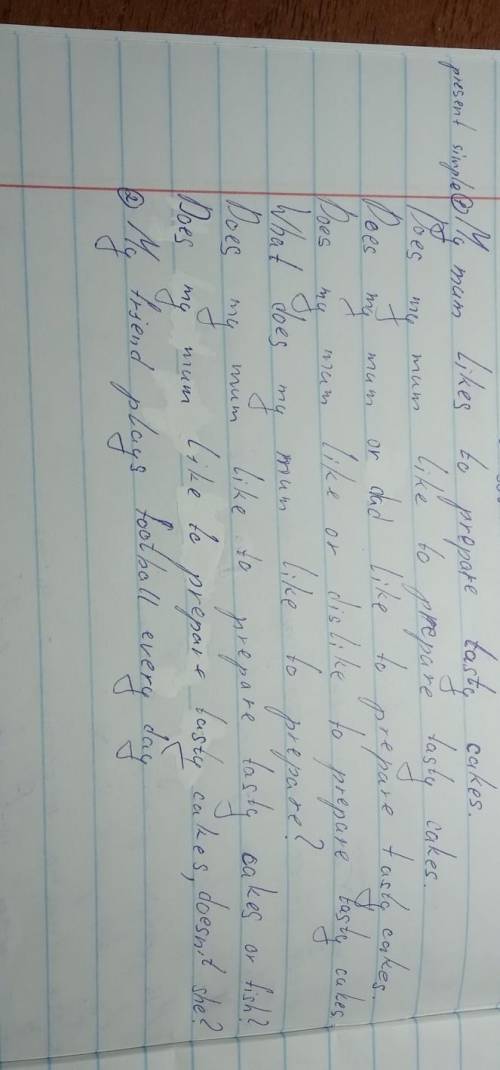 present simple ① My mum likes to prepare tasty cakes.
Does my mum like to prepare tasty cakes.
Does my mum or dad like to prepare tasty cakes.
Does my mum like or dislike to prepare tasty cakes.
What does my mum like to prepare?
Does my mum like to prepare tasty cakes or fish?
Does my mum like to prepare tasty cakes, doesn't she?
② My friend plays football every day